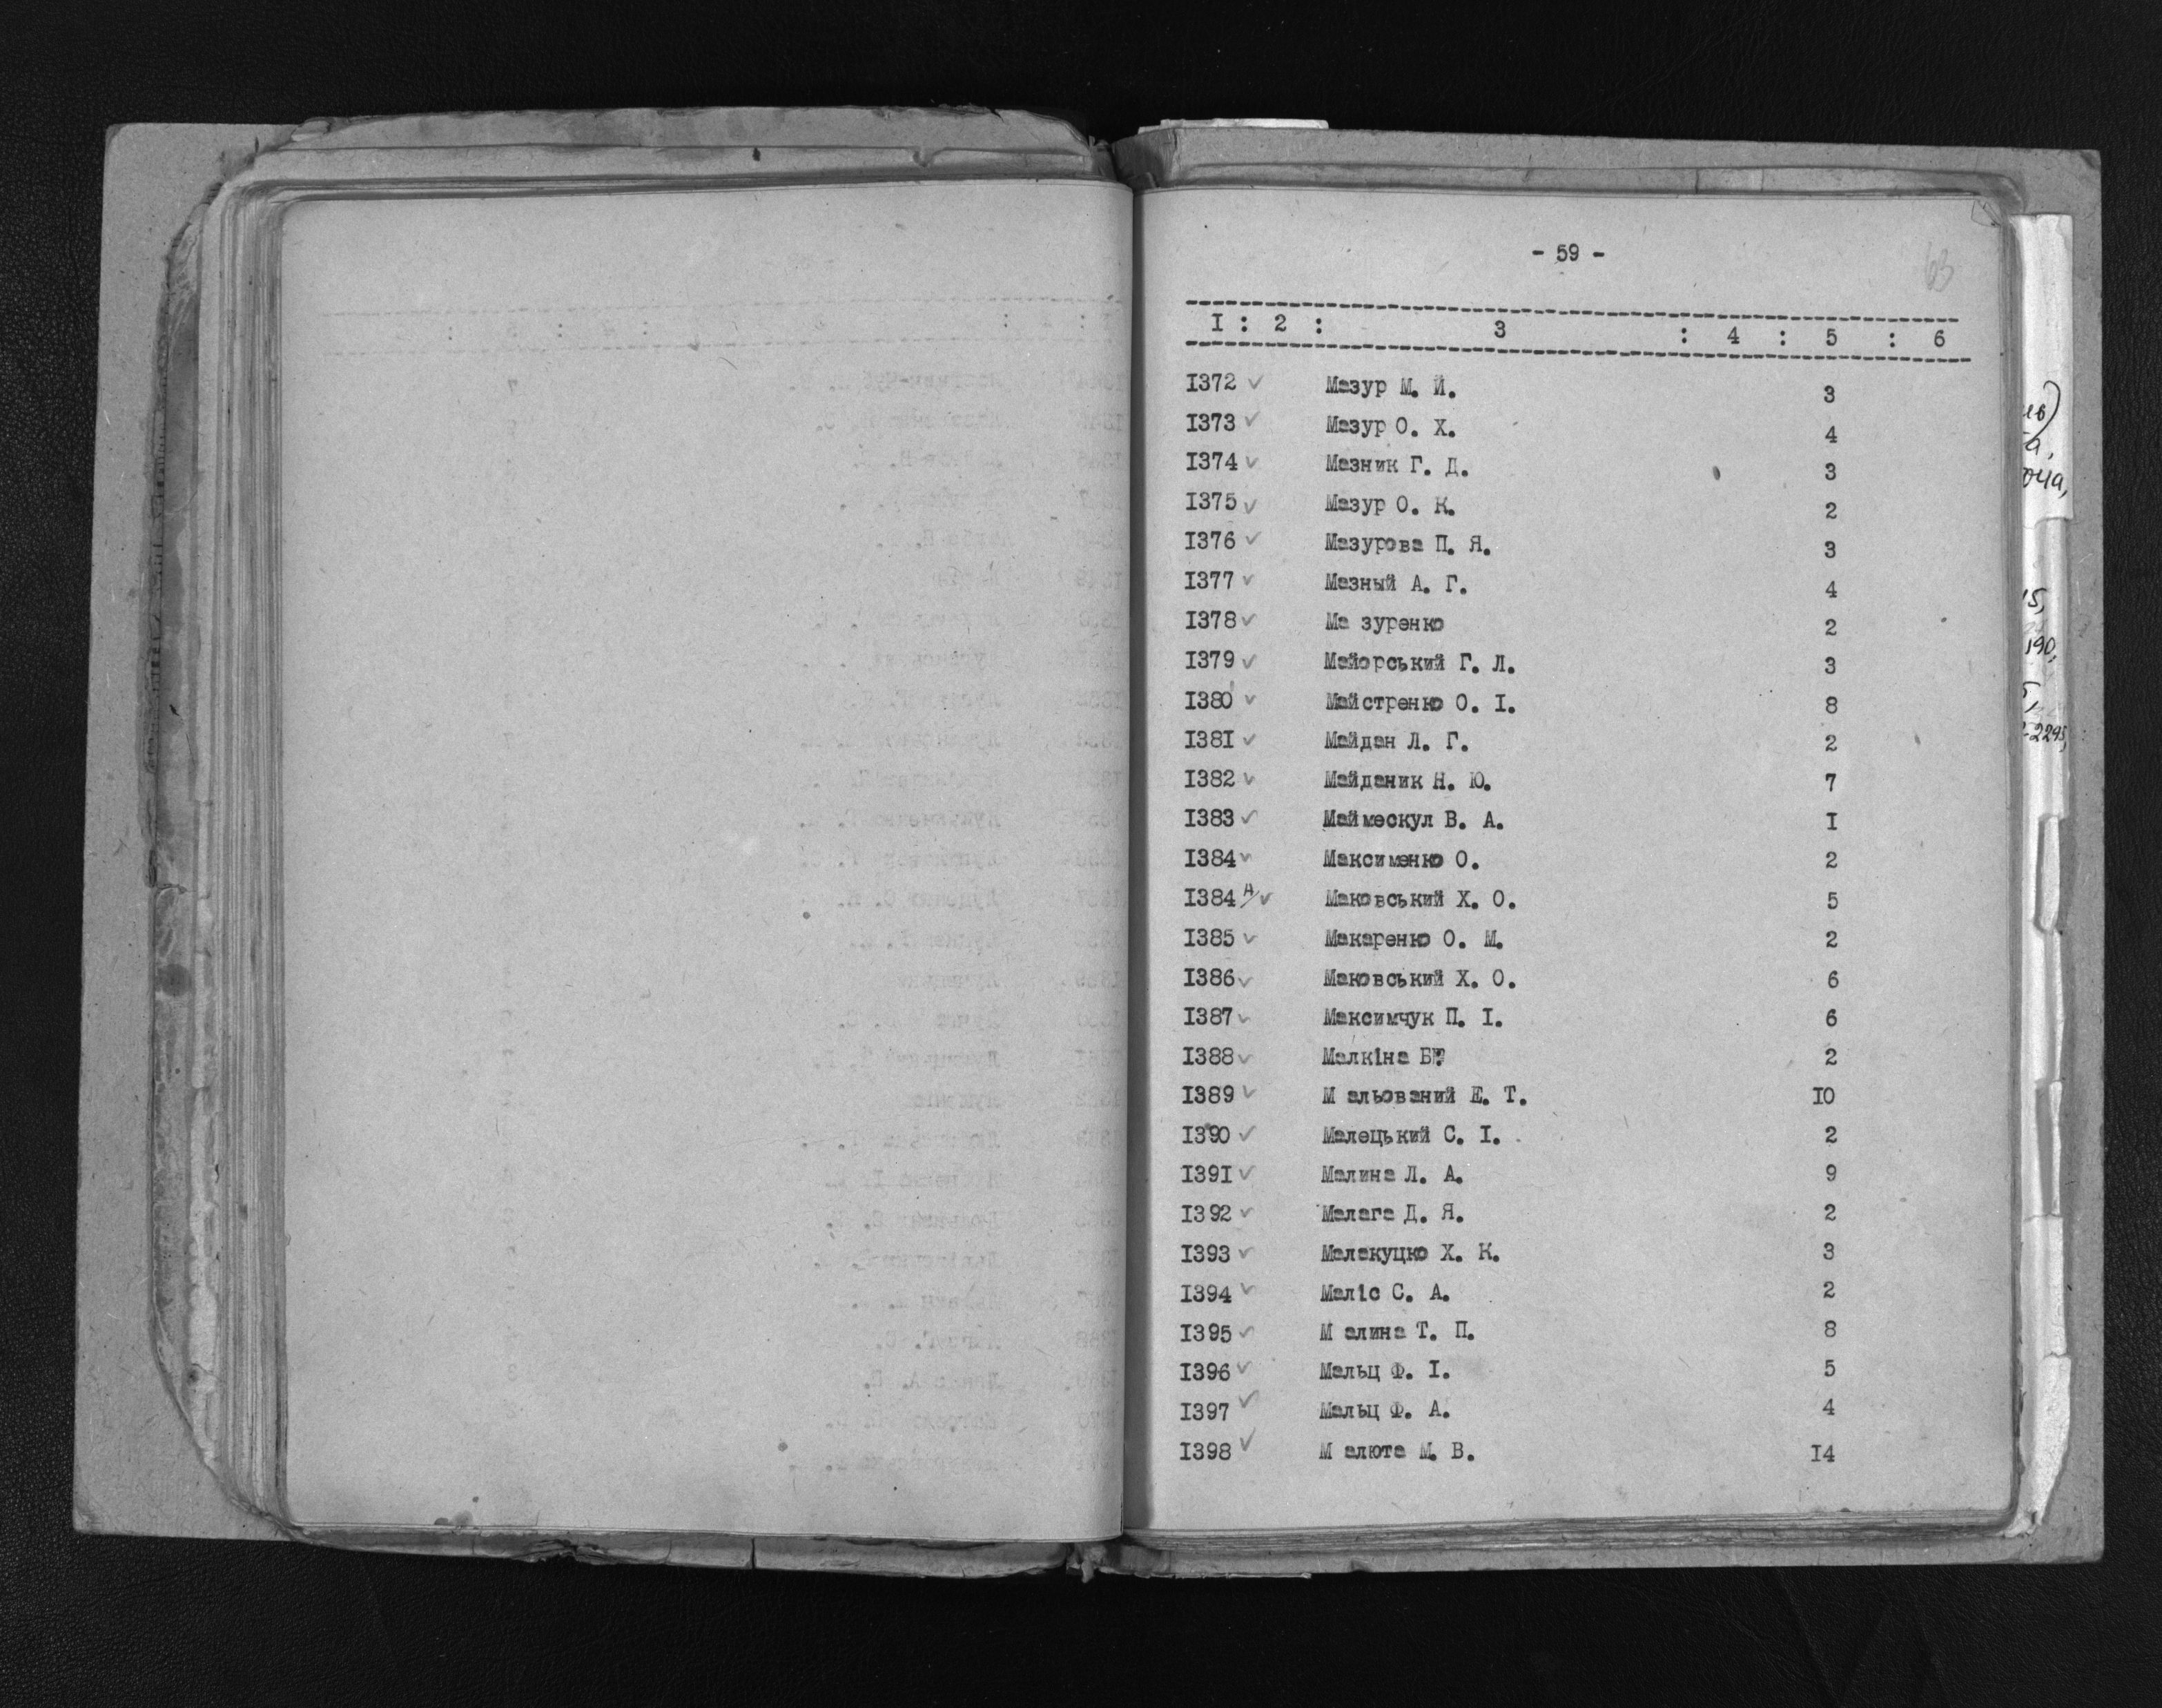 - 59 -
63
I : 2 : 3 : 4 : 5 : 6
I372 ✓ Мазур М. Й. 3
I373 ✓ Мазур О. Х. 4
I374 ✓ Мазник Г. Д. 3
I375 ✓ Мазур О. К. 2
I376 ✓ Мазурова П. Я. 3
I377 ✓ Мазный А. Г. 4
I378 ✓ Ма зуренко 2
I379 ✓ Майорський Г. Л. 3
I380 ✓ Майстренко О. І. 8
I38I ✓ Майдан Л. Г. 2
I382 ✓ Майданик Н. Ю. 7
I383 ✓ Маймескул В. А. I
I384 ✓ Максименко О. 2
I384 А/ ✓ Маковський Х. О. 5
I385 ✓ Макаренко О. М. 2
I386 ✓ Маковський Х. О. 6
I387 ✓ Максимчук П. І. 6
I388 ✓ Малкіна 2
I389 ✓ М альований Е. Т. IO
I390 ✓ Малецький С. І. 2
I39I ✓ Малина Л. А. 9
I392 ✓ Малага Д. Я. 2
I393 ✓ Малакуцко Х. К. 3
I394 ✓ Маліс С. А. 2
I395 ✓ М алина Т. П. 8
I396 ✓ Мальц Ф. І. 5
I397 ✓ Мальц Ф. А. 4
I398 ✓ М алюта М. В. I4
190,
-2295,